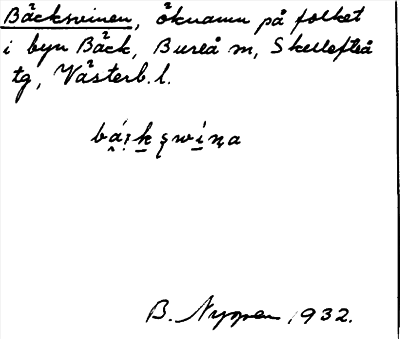 Bäcksvinen, öknamn på folket
i byn Bäck, Bureå m, Skellefteå
tg, Västerb. l.
B. Nygren, 1932.